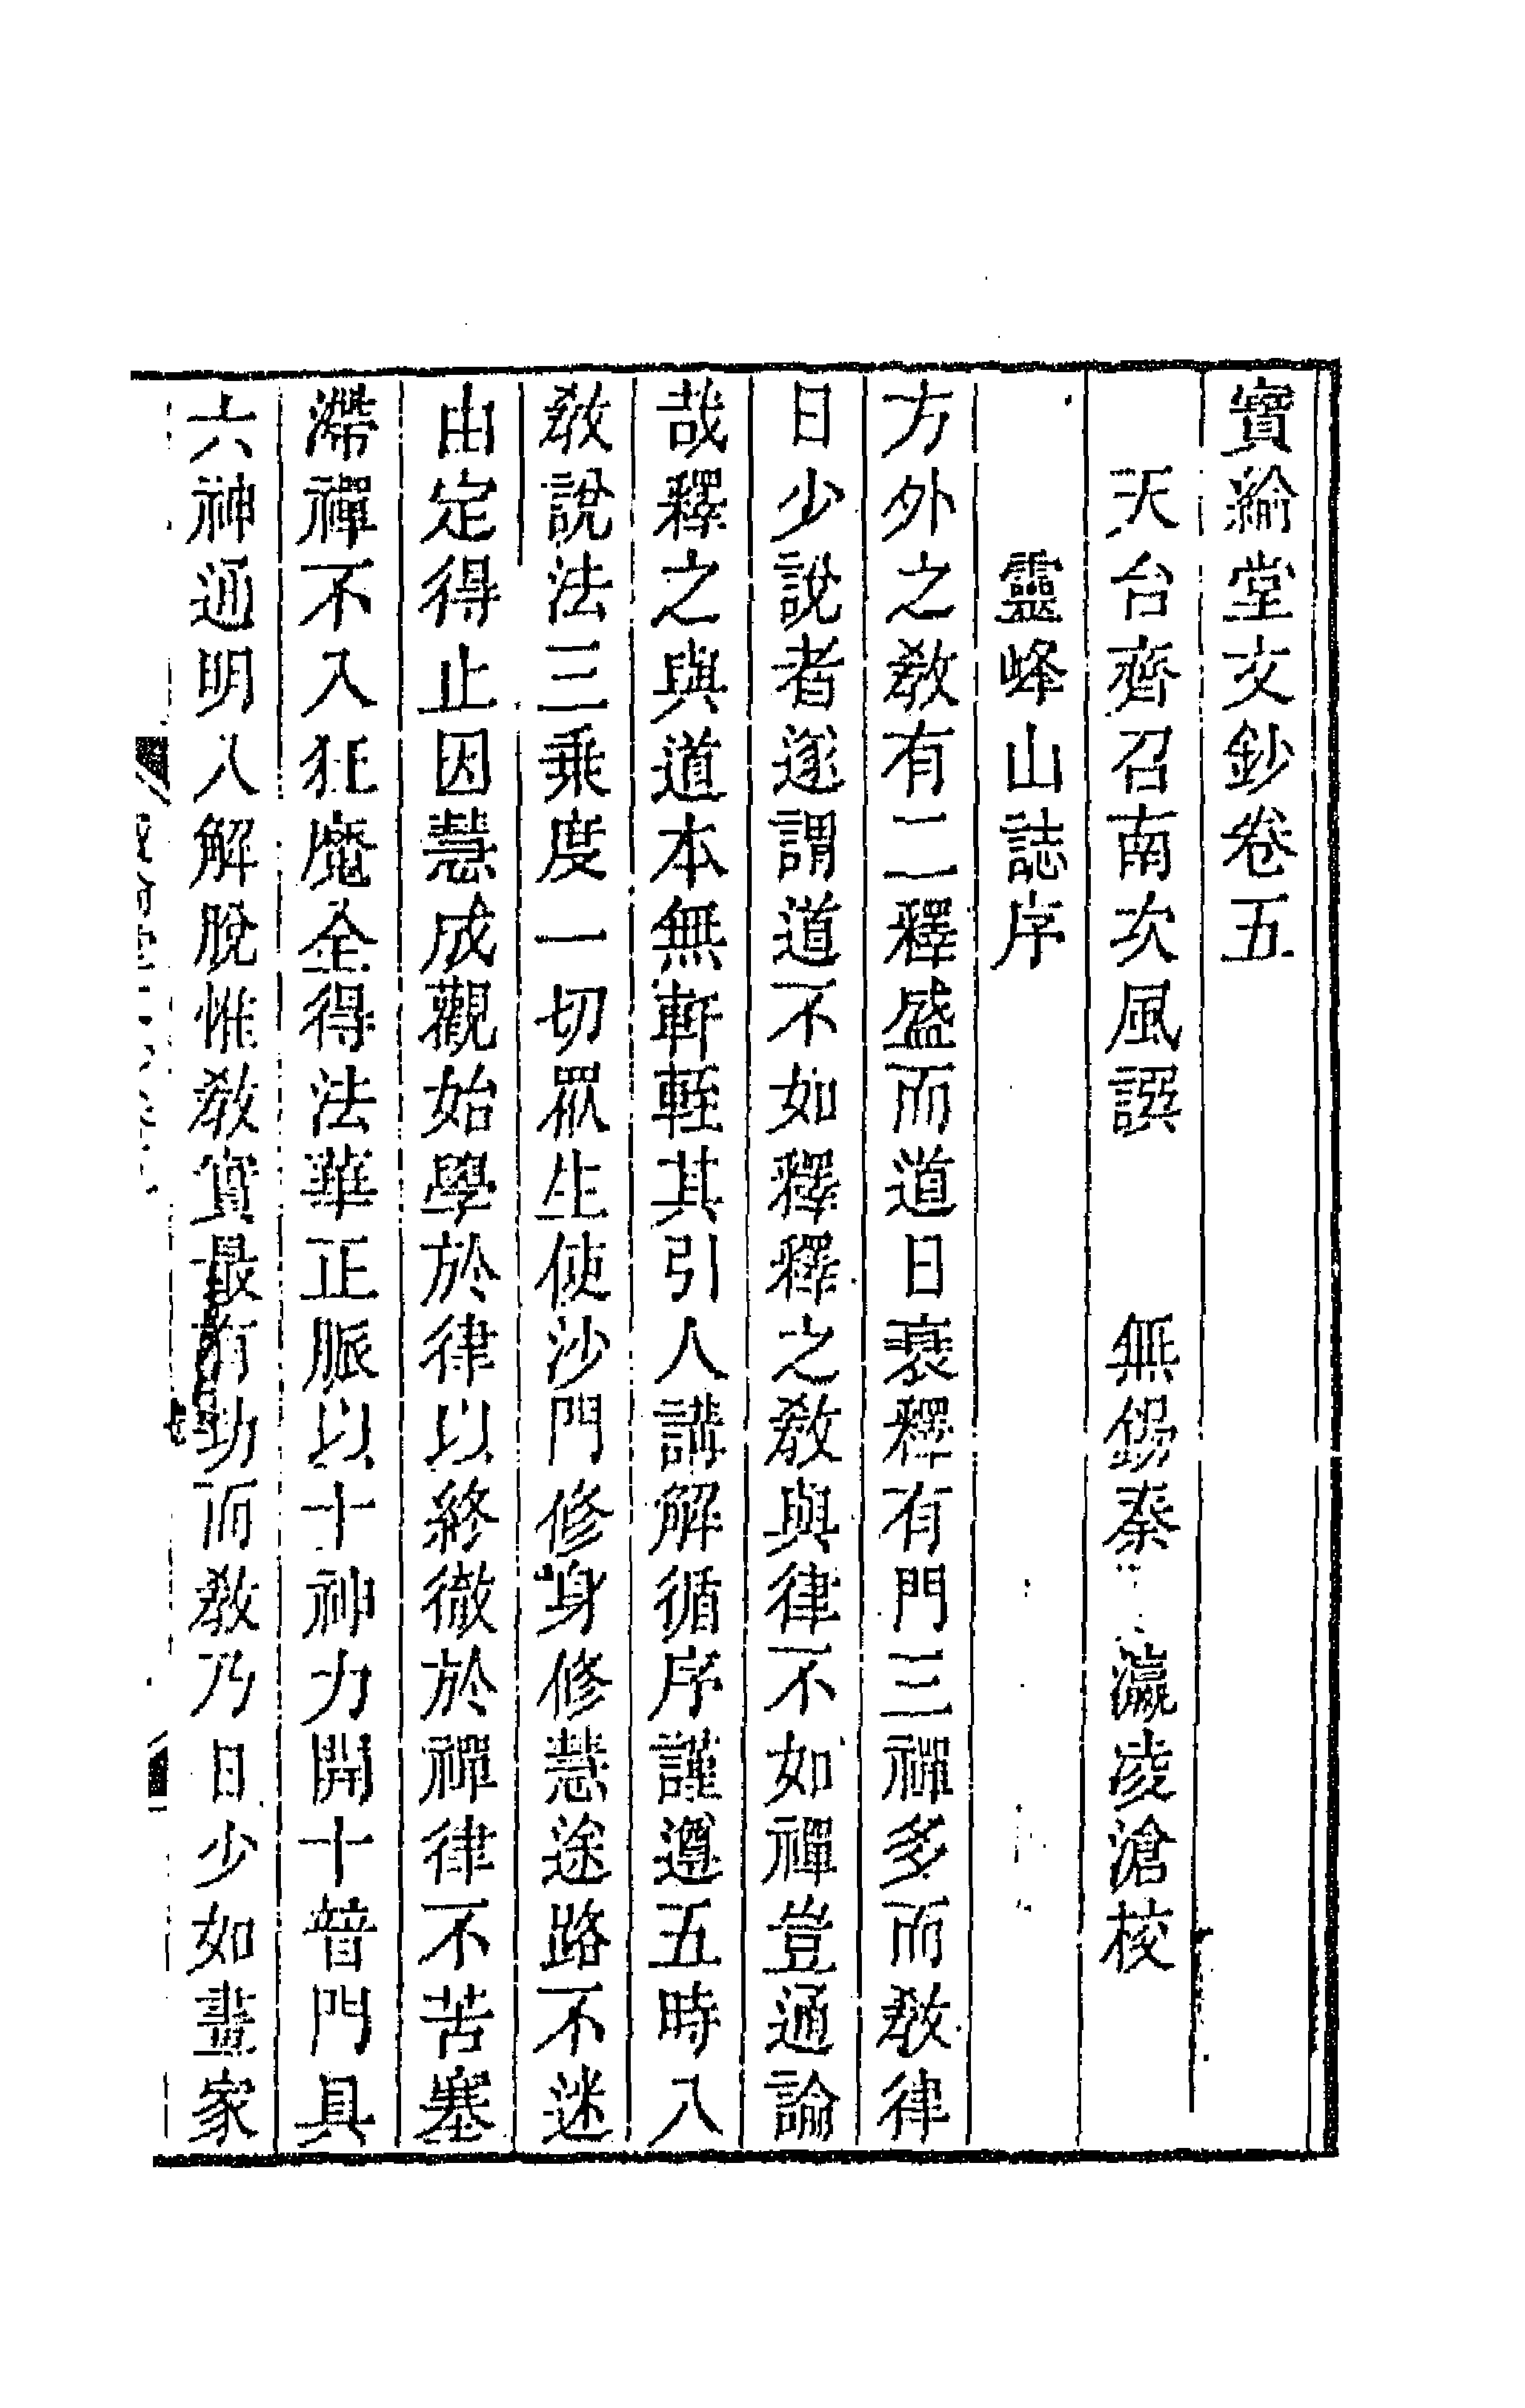 寶綸堂文鈔卷五
天台齊召南次風譔 無錫秦瀛凌滄校
靈峰山誌序
方外之敎有二釋盛而道日衰釋有門三禪多而敎律
日少說者遂謂道不如釋釋之敎與律不如禪豈通論
哉釋之與道本無軒輊其引人講解循序謹遵五時八
敎說法三乘度一切眾生使沙門修身修慧途路不迷
由定得止因慧成觀始學於律以終徹於禪律不苦塞
滯禪不入狂魔全得法華正脈以十神力開十普門具
六神通明八解脫惟敎實最有功而敎乃日少如畫家